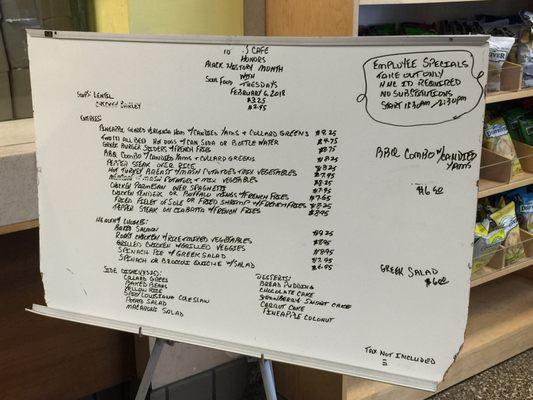 CAFE
HONORS
BLACK HISTORY MONTH
WITH
SOUL FOOD TUESDAYS
FEBRUARY 6, 2018
SOUPS: LENTIL $3.25
CHICKEN BARLEY $2.45
ENTREES:
PINEAPPLE GLAZED VIRGINIA HAM W/ CANDIED YAMS & COLLARD GREENS $8.25
HOT DOGS W/ CAN SODA OR BOTTLE WATER $4.75
GREEK BURGER SLIDERS W/ FRENCH FRIES $8.75
BBQ COMBO W/ CANDIED YAMS & COLLARD GREENS $8.25
PEPPER STEAK OVER RICE $8.25
HOT TURKEY W/ MASH POTATOES & MIX VEGETABLES $7.95
MEATLOAF W/ MASH POTATOES & MIX VEGETABLES $8.25
CHICKEN PARMESAN OVER SPAGHETTI $7.95
CHICKEN TENDERS OR BUFFALO WINGS W/ FRENCH FRIES $7.95
FRIED FILLET OF SOLE OR FRIED SHRIMP W/ FRENCH FRIES $8.25
PEPPER STEAK ON CIABATTA W/ FRENCH FRIES $8.95
HEALTHY CHOICES:
BAKED SALMON $9.25
ROAST CHICKEN W/ RICE & MIXED VEGETABLES $8.95
GRILLED CHICKEN W/ GRILLED VEGGIES $8.95
SPINACH PIE W/ GREEK SALAD $7.95
SPINACH OR BROCCOLI QUICHE W/ SALAD $6.95
SIDE DISHES
COLLARD GREENS
BAKED BEANS
YELLOW RICE
SPICY LOUISIANA COLESLAW
POTATO SALAD
MACARONI SALAD
DESSERTS:
BREAD PUDDING
CHOCOLATE CAKE
STRAWBERRY SHORT CAKE
CARROT CAKE
PINEAPPLE COCONUT
EMPLOYEE SPECIALS
TAKE OUT ONLY
ID REQUIRED
NO SUBSTITUTIONS
START 1:30PM / 2:30PM
BBQ COMBO W/ CANDIED
YAMS
$6.00
GREEK SALAD
$6.00
TAX NOT INCLUDED